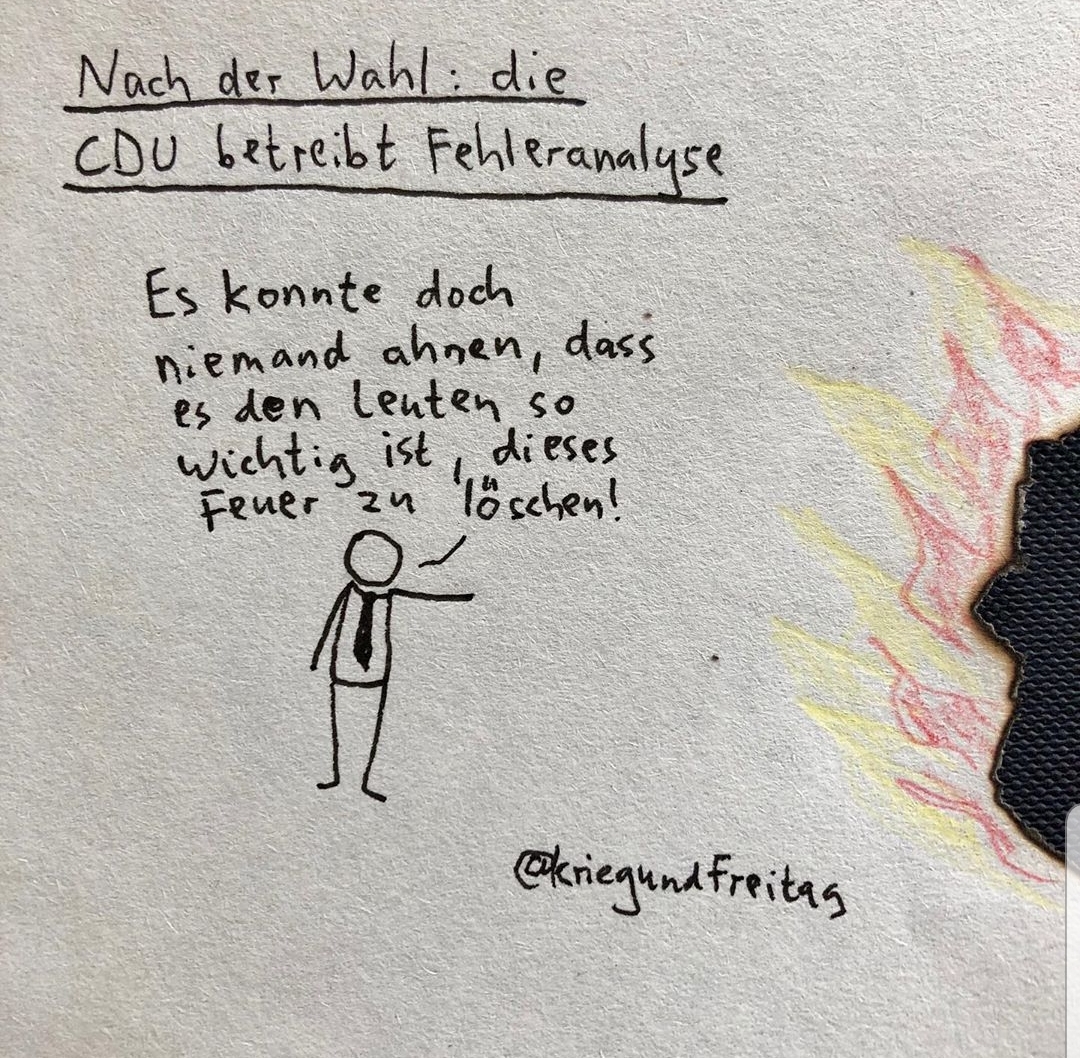 Nach der Wahl: die
CDU betreibt Fehleranalyse
Es konnte doch
niemand ahnen, dass
es den Leuten so
wichtig ist, dieses
Feuer zu löschen!
@kriegundfreitag